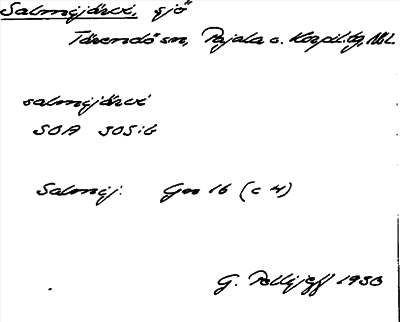 Salmijärvi, sjö
Tärendö sn, Pajala o. Korpil. tg, Nbl.
salmijärvi
SOA SOS:6
Salmij. Gm 16 (c 4)
G. Pellijeff 1980